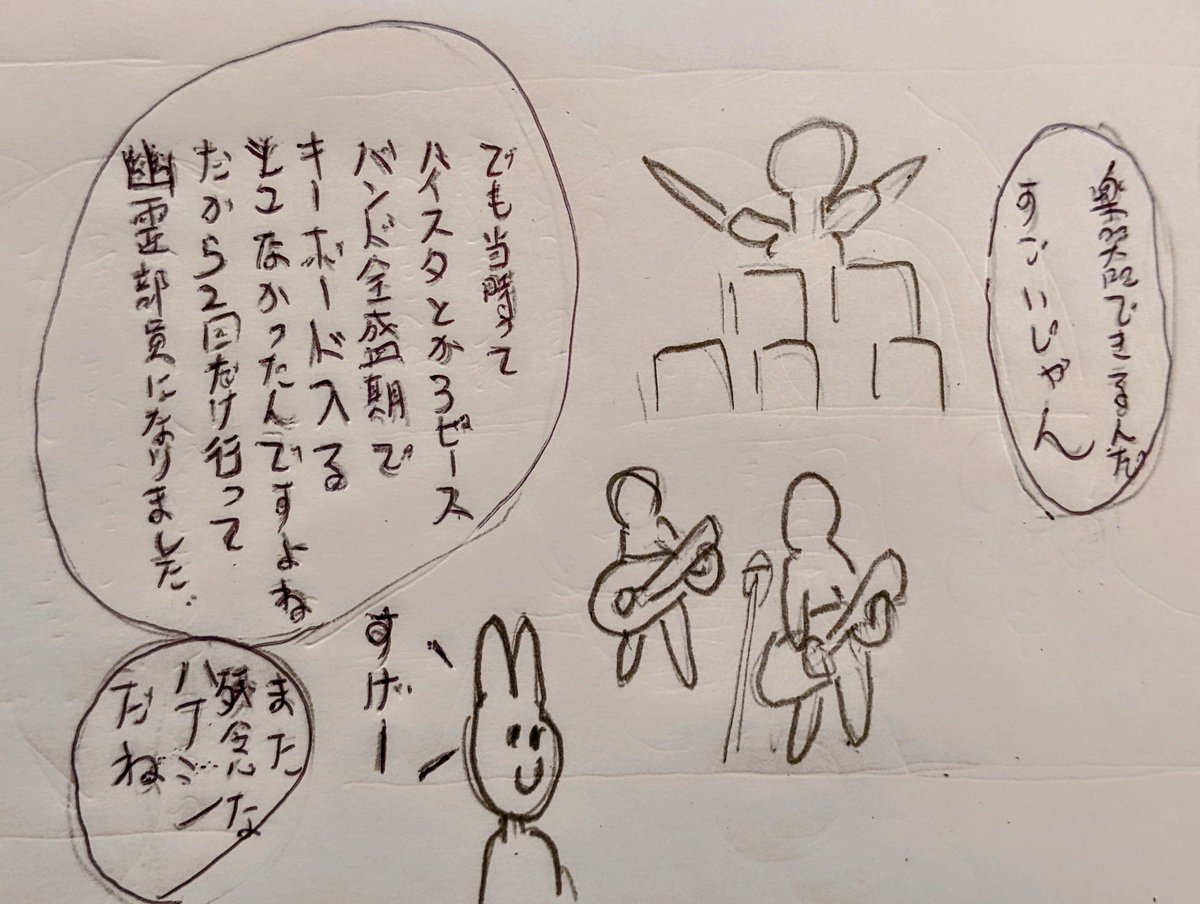 楽器できるんだ
すごいじゃん
でも当時って
ハイスタとかろビース
バンド全盛期で
キーボード入る
とこなかったんですよね
だから2回だけ行って
幽霊部員になりました。
すげー
また
残念な
ハナシ
だね